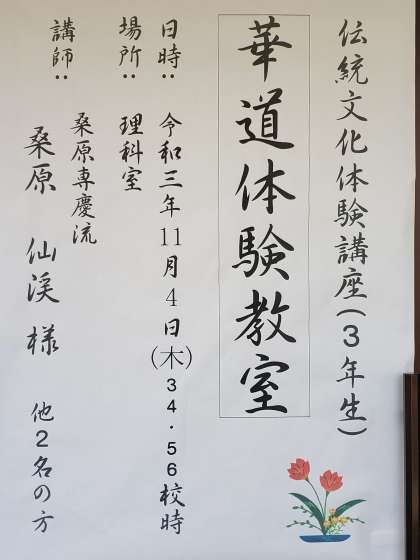 伝統文化体験講座(3年生)
華道体験教室
日時: 令和三年11月4日(木)34・56校時
場所: 理科室
講師: 桑原専慶流
桑原 仙渓 様 他2名の方